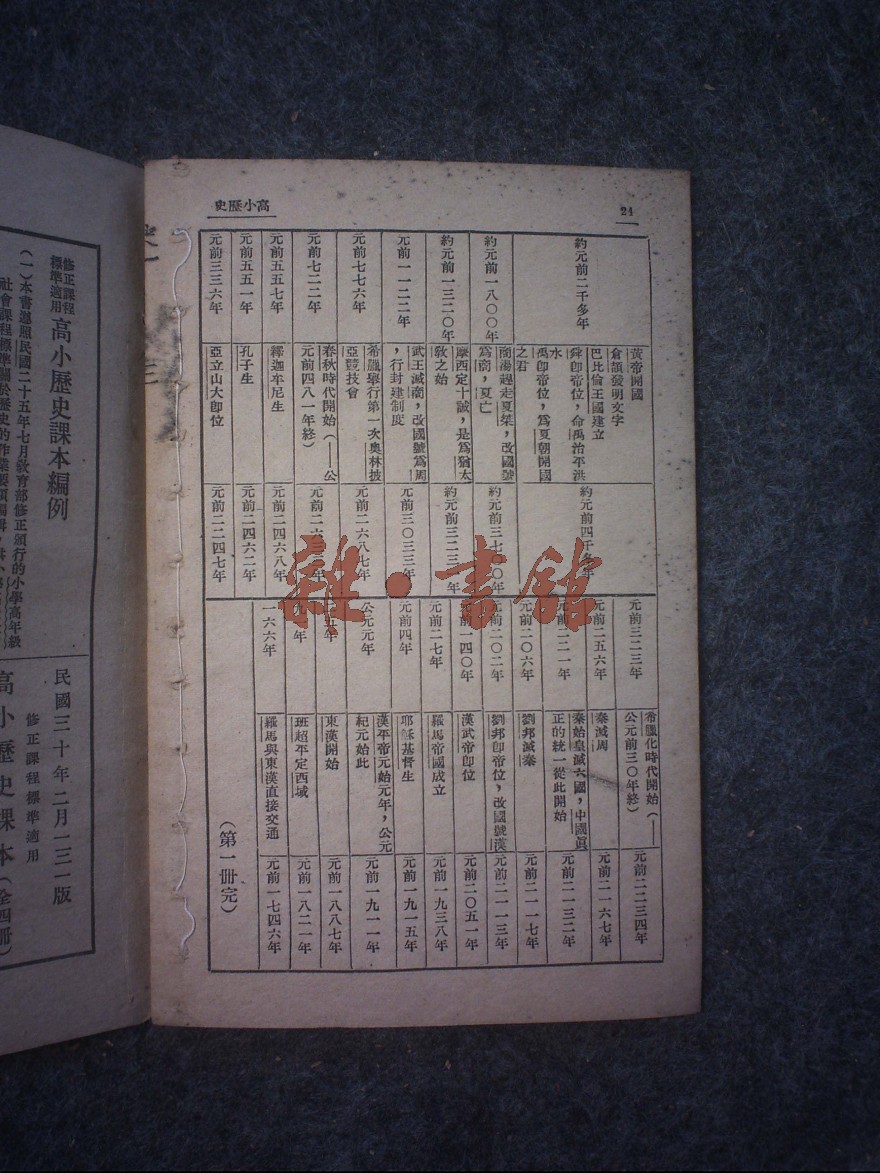 24
高小歷史
約元前二千多年
黃帝開國
倉頡發明文字
巴比倫王國建立
舜卽帝位，命禹治平洪
水
禹卽帝位，爲夏朝開國
之君
約元前四千多年
約元前一八〇〇年
商湯趕走夏桀，改國號
爲商，夏亡
約元前三七〇〇年
約元前一三二〇年
摩西定十誡，是爲猶太
敎之始
約元前三二三一年
元前一一二二年
武王滅商，改國號爲周
，行封建制度
元前三〇三三年
元前七七六年
希臘舉行第一次奧林披
亞競技會
元前二六八七年
元前七二二年
春秋時代開始（——公
元前四八一年終）
元前五五七年
釋迦牟尼生
元前二四六八年
元前五五一年
孔子生
元前二四六二年
元前三三六年
亞立山大卽位
元前二二四七年
元前三二三年
希臘化時代開始（——
公元前三〇年終）
元前二二三四年
元前二五六年
秦滅周
元前二一六七年
元前二二一年
秦始皇滅六國，中國眞
正的統一從此開始
元前二一三二年
元前二〇六年
劉邦滅秦
元前二一一七年
元前二〇二年
劉邦卽帝位，改國號漢
元前二一一三年
元前一四〇年
漢武帝卽位
元前二〇五一年
元前二七年
羅馬帝國成立
元前一九三八年
元前四年
耶穌基督生
元前一九一五年
公元元年
漢平帝元始元年，公元
紀元始此
元前一九一一年
東漢開始
元前一八八七年
班超平定西域
元前一八二一年
一六六年
羅馬與東漢直接交通
元前一七四六年
（第一冊完）
雜·書館
修正課程
標準適用
高小歷史課本編例
（一）本書遵照民國二十五年七月敎育部修正頒行的小學高年級
民國三十年二月一三一版
修正課程標準適用
高小歷史課本（全四冊）